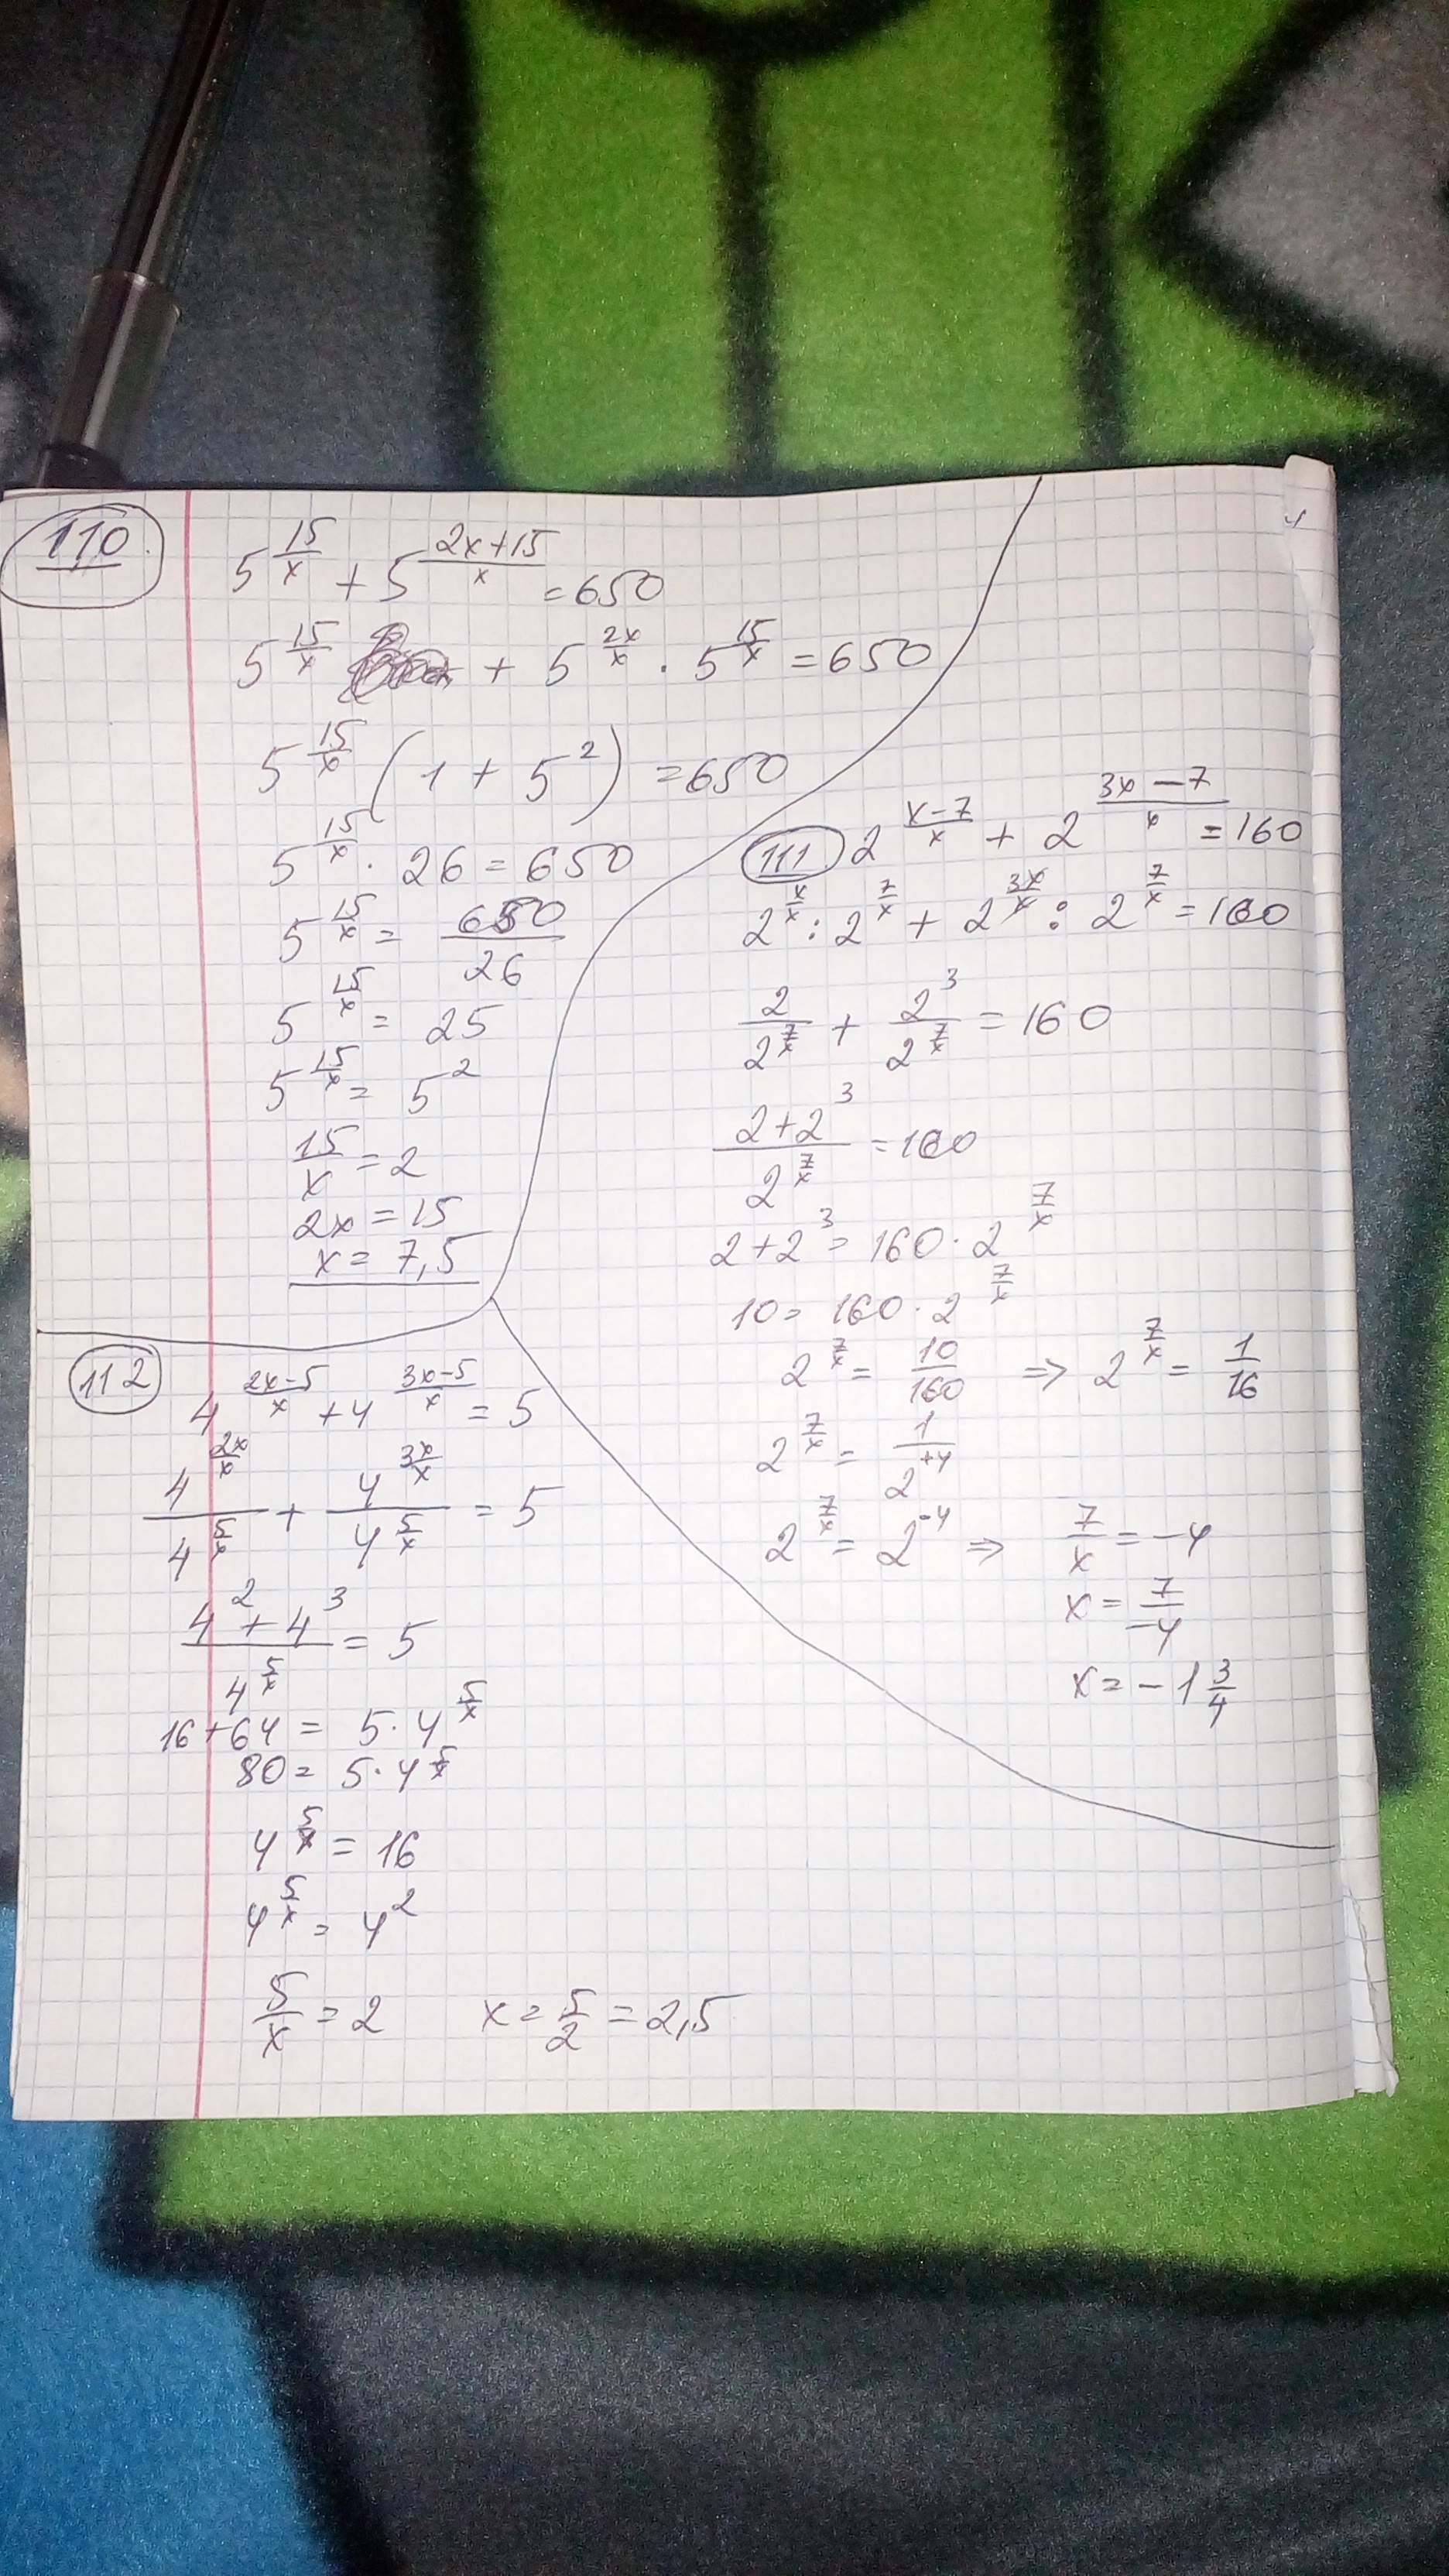 110.
5^(15/x) + 5^((2x+15)/x) = 650
5^(15/x) + 5^(2x/x) · 5^(15/x) = 650
5^(15/x) (1 + 5^2) = 650
5^(15/x) · 26 = 650
5^(15/x) = 650/26
5^(15/x) = 25
5^(15/x) = 5^2
15/x = 2
2x = 15
x = 7,5
111. 2^((x-7)/x) + 2^((3x-7)/x) = 160
2^(x/x) : 2^(7/x) + 2^(3x/x) : 2^(7/x) = 160
2/2^(7/x) + 2^3/2^(7/x) = 160
(2+2^3)/2^(7/x) = 160
2+2^3 = 160 · 2^(7/x)
10 = 160 · 2^(7/x)
2^(7/x) = 10/160 => 2^(7/x) = 1/16
2^(7/x) = 1/2^(+4)
2^(7/x) = 2^(-4) => 7/x = -4
x = 7/-4
x = -1 3/4
112 4^((2x-5)/x) + 4^((3x-5)/x) = 5
4^(2x/x)/4^(5/x) + 4^(3x/x)/4^(5/x) = 5
(4^2 + 4^3)/4^(5/x) = 5
16+64 = 5 · 4^(5/x)
80 = 5 · 4^(5/x)
4^(5/x) = 16
4^(5/x) = 4^2
5/x = 2 x = 5/2 = 2,5